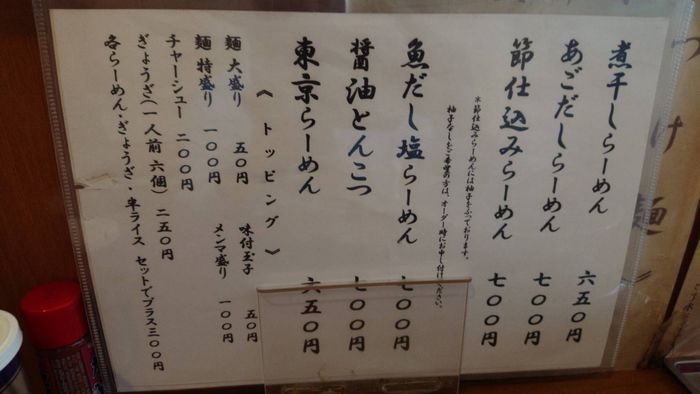 煮干しらーめん 六五〇円
あごだしらーめん 七〇〇円
節仕込みらーめん 七〇〇円
※節仕込みらーめんには柚子をふっております。
柚子なしをご希望の方は、オーダー時にお申し付けください。
魚だし塩らーめん 七〇〇円
醤油とんこつ 七〇〇円
東京らーめん 六五〇円
《トッピング》
麺 大盛り 五〇円
味付玉子 五〇円
麺 特盛り 一〇〇円
メンマ盛り 一〇〇円
チャーシュー 二〇〇円
ぎょうざ(一人前 六個) 二五〇円
各らーめん・ぎょうざ・半ライス セットでプラス三〇〇円
つけ麺